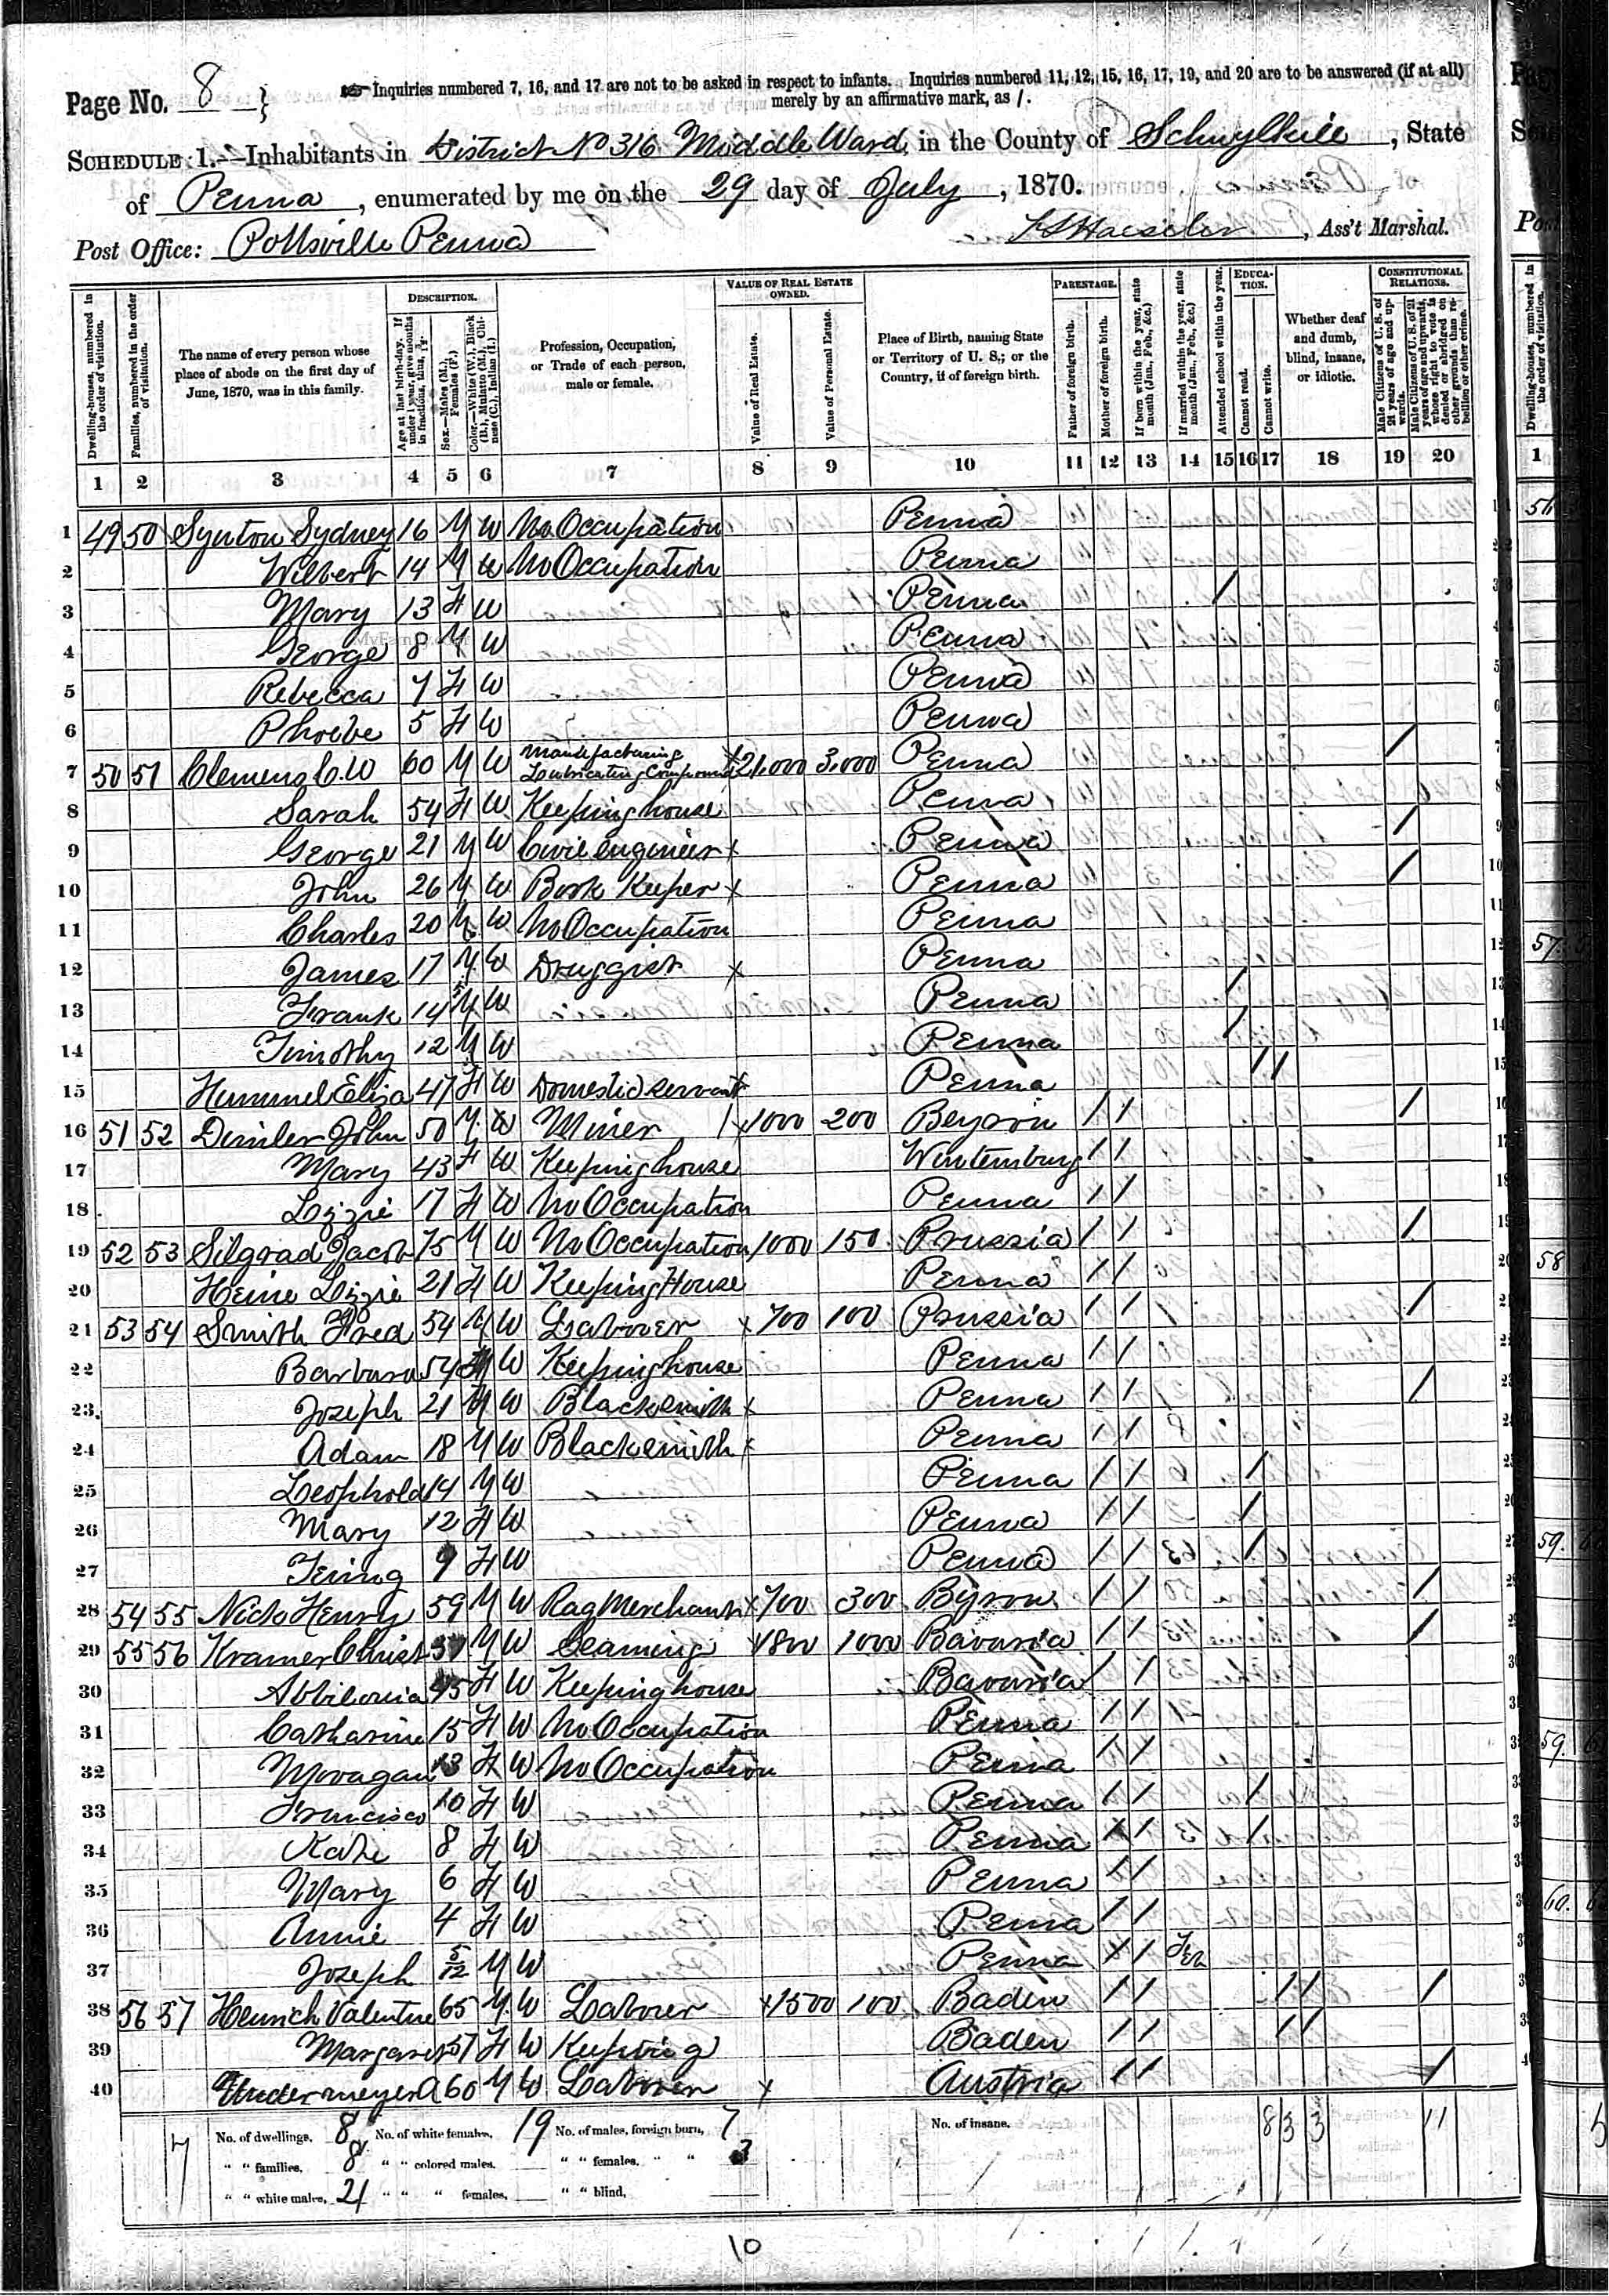 Page No. 8 } Inquiries numbered 7, 16, and 17 are not to be asked in respect to infants. Inquiries numbered 11, 12, 15, 16, 17, 19, and 20 are to be answered (if at all)
merely by an affirmative mark, as /.
SCHEDULE 1.—Inhabitants in District No 316 Middle Ward, in the County of Schuylkill, State
of Penna, enumerated by me on the 29 day of July, 1870.
Post Office: Pottsville Penna , Ass't Marshal.
Dwelling-houses, numbered in the order of visitation.
Families, numbered in the order of visitation.
The name of every person whose place of abode on the first day of June, 1870, was in this family.
DESCRIPTION.
Age at last birth-day. If under 1 year, give months in fractions, thus, 3/12.
Sex.—Males (M.), Females (F.)
Color.—White (W.), Black (B.), Mulatto (M.), Chinese (C.), Indian (I.)
Profession, Occupation, or Trade of each person, male or female.
VALUE OF REAL ESTATE OWNED.
Value of Real Estate.
Value of Personal Estate.
Place of Birth, naming State or Territory of U. S.; or the Country, if of foreign birth.
PARENTAGE.
Father of foreign birth.
Mother of foreign birth.
If born within the year, state month (Jan., Feb., &c.)
If married within the year, state month (Jan., Feb., &c.)
Attended school within the year.
EDUCATION.
Cannot read.
Cannot write.
Whether deaf and dumb, blind, insane, or idiotic.
CONSTITUTIONAL RELATIONS.
Male Citizens of U. S. of 21 years of age and upwards.
Male Citizens of U. S. of 21 years of age and upwards, whose right to vote is denied or abridged on other grounds than rebellion or other crime.
1 2 3 4 5 6 7 8 9 10 11 12 13 14 15 16 17 18 19 20
1 49 50 Synton Sydney 16 M W No Occupation Penna
2 Wilbert 14 M W No Occupation Penna
3 Mary 13 F W Penna /
4 George 8 M W Penna
5 Rebecca 7 F W Penna
6 Phoebe 5 F W Penna
7 50 51 Clemens C. W 60 M W Manufacturing Lubricating Compound 21.000 3.000 Penna /
8 Sarah 54 F W Keeping house Penna
9 George 21 M W Civil engineer x Penna /
10 John 26 M W Book Keeper x Penna /
11 Charles 20 M W No Occupation Penna
12 James 17 M W Druggist x Penna
13 Frank 14 M W Penna /
14 Timothy 12 M W Penna /
15 Hummel Eliza 47 F W Domestic servant Penna / /
16 51 52 Dimler John 50 M W Miner x 1000 200 Beyorn / / /
17 Mary 43 F W Keeping house Wurtemburg / /
18 Lizzie 17 F W No Occupation Penna / /
19 52 53 Silgrad Jacob 75 M W No Occupation 1000 150 Prussia / / /
20 Heine Lizzie 21 F W Keeping House Penna / /
21 53 54 Smith Fred 54 M W Labover x 700 100 Prussia / / /
22 Barbara 54 F W Keeping house Penna / /
23 Joseph 21 M W Blacksmith x Penna / / /
24 Adam 18 M W Blacksmith x Penna / /
25 Leophold 14 M W Penna / / /
26 Mary 12 F W Penna / / /
27 9 F W Penna / / /
28 54 55 Nick Henry 59 M W Rag Merchant x 700 300 Byron / / /
29 55 56 Kramer Christ M W 1800 1000 Bavaria / / /
30 45 F W Keeping house Bavaria / /
31 Catharine 15 F W No Occupation Penna / /
32 13 F W No Occupation Penna / /
33 Francisca 10 F W Penna / / /
34 Katie 8 F W Penna / / /
35 Mary 6 F W Penna / /
36 Annie 4 F W Penna / /
37 Joseph 5/12 M W Penna / /
38 56 57 Henrich Valentine 65 M W Labover x 1500 100 Baden / / / / /
39 Margaret 57 F W Keeping Baden / / / /
40 60 M W Labover x Austria / / /
No. of dwellings, 8 No. of white females, 19 No. of males, foreign born, 7 No. of insane. 8 3 3 11
" " families, 8 " " colored males, " " females, " " 3
" " white males, 21 " " " females, " " blind,
10